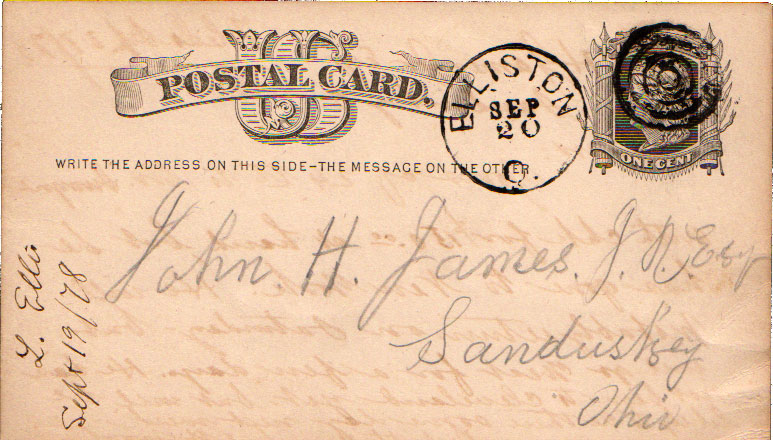 US
POSTAL CARD.
WRITE THE ADDRESS ON THIS SIDE–THE MESSAGE ON THE OTHER
ELLISTON
SEP
20
O.
ONE CENT
John. H. James. J. R. Esqr
Sandusky
Ohio
L. Ellis
Sept 19/78